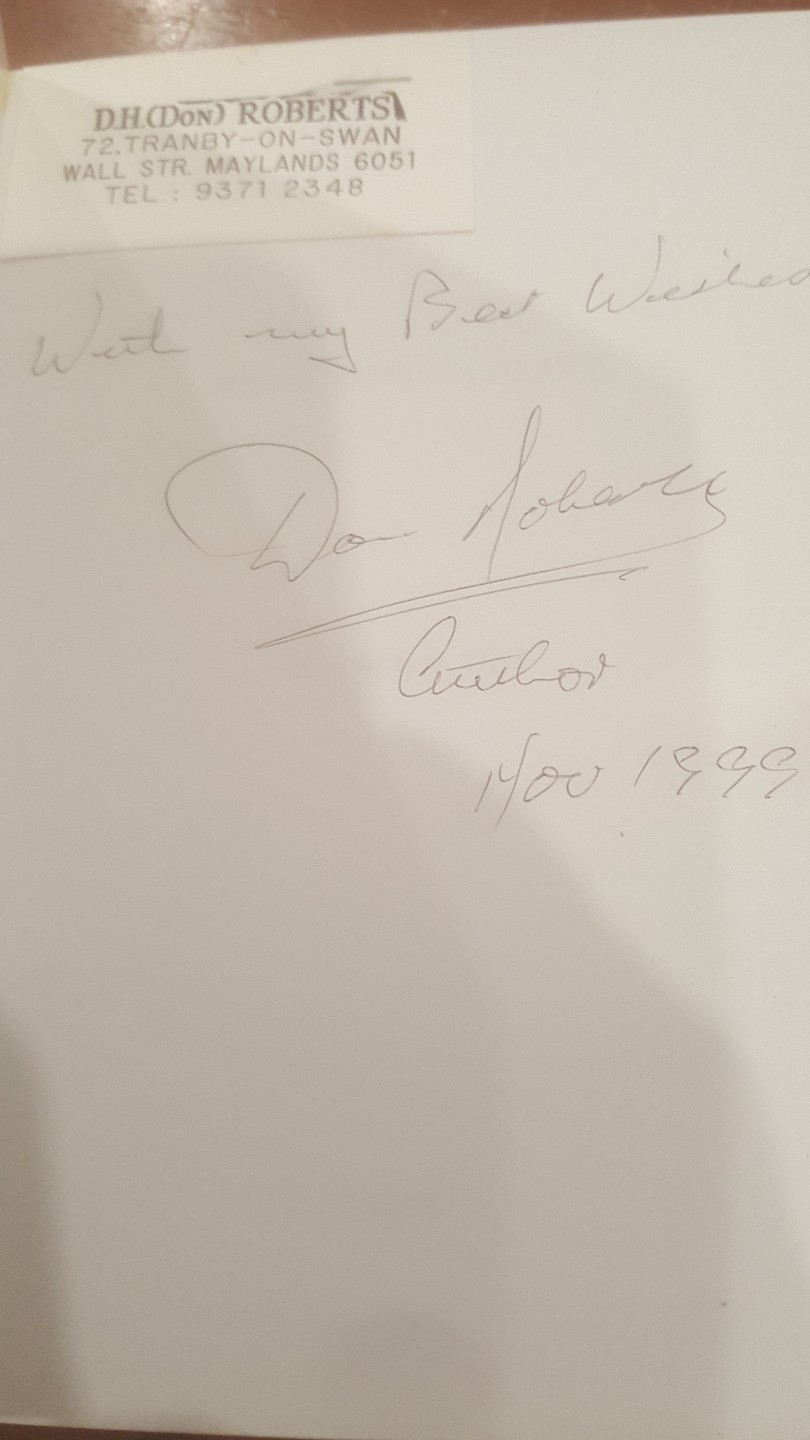 D.H.(DON) ROBERTS
72.TRANBY-ON-SWAN
WALL STR. MAYLANDS 6051
TEL : 9371 2348
With my Best Wishes
Don Roberts
Author
Nov 1999